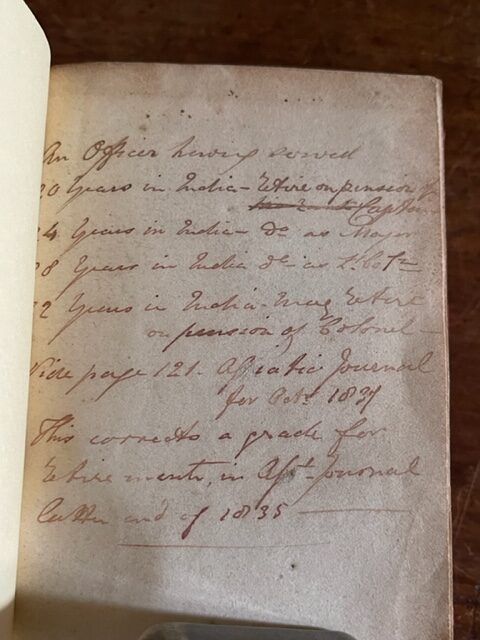 An Officer having served
20 Years in India - Retire on pension of
Captain
24 Years in India - Do as Major
28 Years in India do - as Lt. Col
32 Years in India - may Retire
on pension of Colonel -
Vide page 121. Assiatic Journal
for Octr 1837
This corrects a grade for
Retirement, in Asst Journal
end of 1835